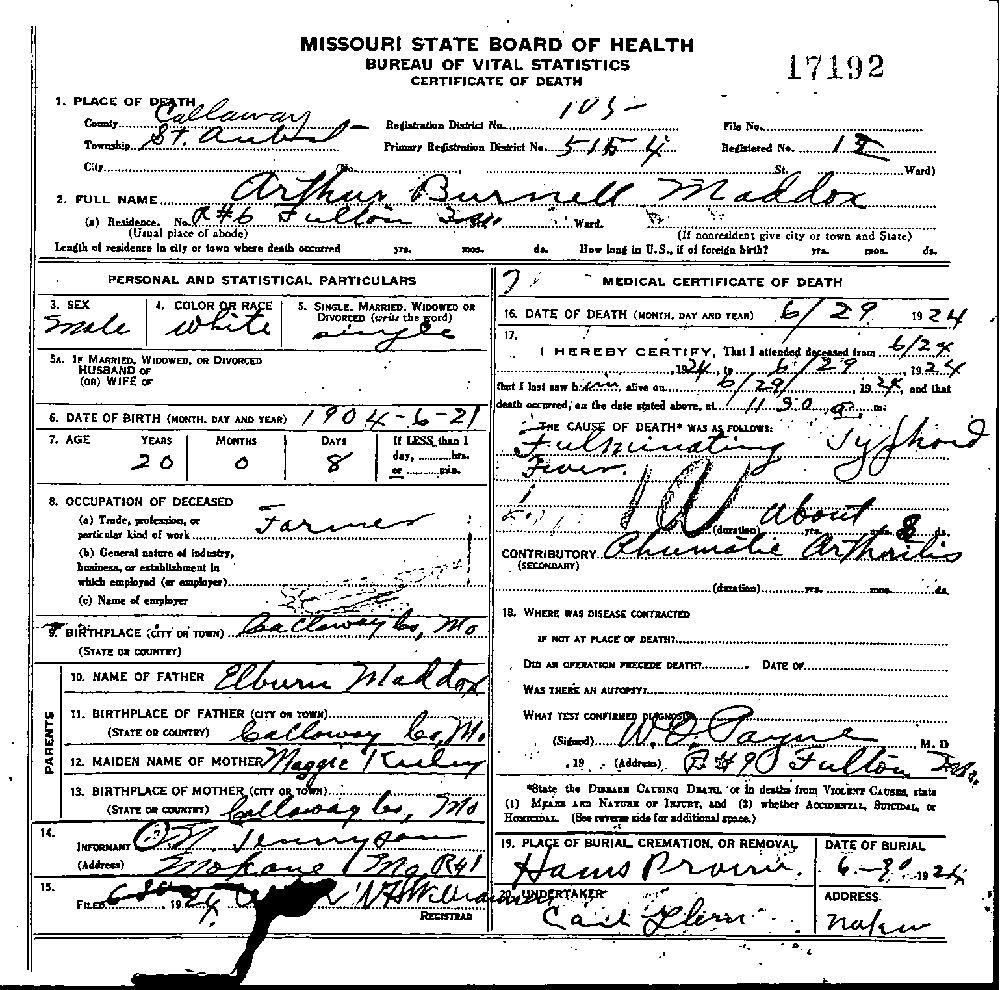 MISSOURI STATE BOARD OF HEALTH
BUREAU OF VITAL STATISTICS
CERTIFICATE OF DEATH
17192
1. PLACE OF DEATH
County Callaway Registration District No. 105 File No.
Township St. Aubert Primary Registration District No. 5154 Registered No. 12
City (No. St. Ward)
2. FULL NAME Arthur Burnell Maddox
(a) Residence. No. R#6 Fulton Mo. St. Ward.
(Usual place of abode) (If nonresident give city or town and State)
Length of residence in city or town where death occurred yrs. mos. ds. How long in U.S., if of foreign birth? yrs. mos. ds.
PERSONAL AND STATISTICAL PARTICULARS
3. SEX
Male
4. COLOR OR RACE
White
5. SINGLE, MARRIED, WIDOWED OR
DIVORCED (write the word)
single
5A. IF MARRIED, WIDOWED, OR DIVORCED
HUSBAND OF
(OR) WIFE OF
6. DATE OF BIRTH (MONTH, DAY AND YEAR) 1904-6-21
7. AGE YEARS MONTHS DAYS If LESS than 1
day, hrs.
or min.
20 0 8
8. OCCUPATION OF DECEASED
(a) Trade, profession, or
particular kind of work Farmer
(b) General nature of industry,
business, or establishment in
which employed (or employer)
(c) Name of employer
9. BIRTHPLACE (CITY OR TOWN) Callaway Co, Mo
(STATE OR COUNTRY)
PARENTS
10. NAME OF FATHER Elburn Maddox
11. BIRTHPLACE OF FATHER (CITY OR TOWN)
(STATE OR COUNTRY) Calloway Co, Mo.
12. MAIDEN NAME OF MOTHER Maggie
13. BIRTHPLACE OF MOTHER (CITY OR TOWN)
(STATE OR COUNTRY) Calloway Co, Mo
14.
INFORMANT M. Tennyson
(Address) Mokane Mo R#1
15.
FILED 1924
REGISTRAR
MEDICAL CERTIFICATE OF DEATH
16. DATE OF DEATH (MONTH, DAY AND YEAR) 6/29 1924
17.
I HEREBY CERTIFY, That I attended deceased from 6/24
, 1924, to 6/29, 1924
that I last saw him alive on 6/29/, 1924, and that
death occurred, on the date stated above, at 11 30 a. m.
THE CAUSE OF DEATH* WAS AS FOLLOWS:
Fulminating Typhoid
Fever.
About
(duration) yrs. 8 ds.
CONTRIBUTORY Rhumatic Arthoritis
(SECONDARY)
(duration) yrs. mos. ds.
18. WHERE WAS DISEASE CONTRACTED
IF NOT AT PLACE OF DEATH?
DID AN OPERATION PRECEDE DEATH? DATE OF
WAS THERE AN AUTOPSY?
WHAT TEST CONFIRMED DIAGNOSIS?
(Signed) W. D. Payne M. D
, 19 (Address) R#9 Fulton Mo.
*State the DISEASE CAUSING DEATH, or in deaths from VIOLENT CAUSES, state
(1) MEANS AND NATURE OF INJURY, and (2) whether ACCIDENTAL, SUICIDAL, or
HOMICIDAL. (See reverse side for additional space.)
19. PLACE OF BURIAL, CREMATION, OR REMOVAL
Hams Prairie.
DATE OF BURIAL
6-30-1924
20. UNDERTAKER
Carl Glenn
ADDRESS